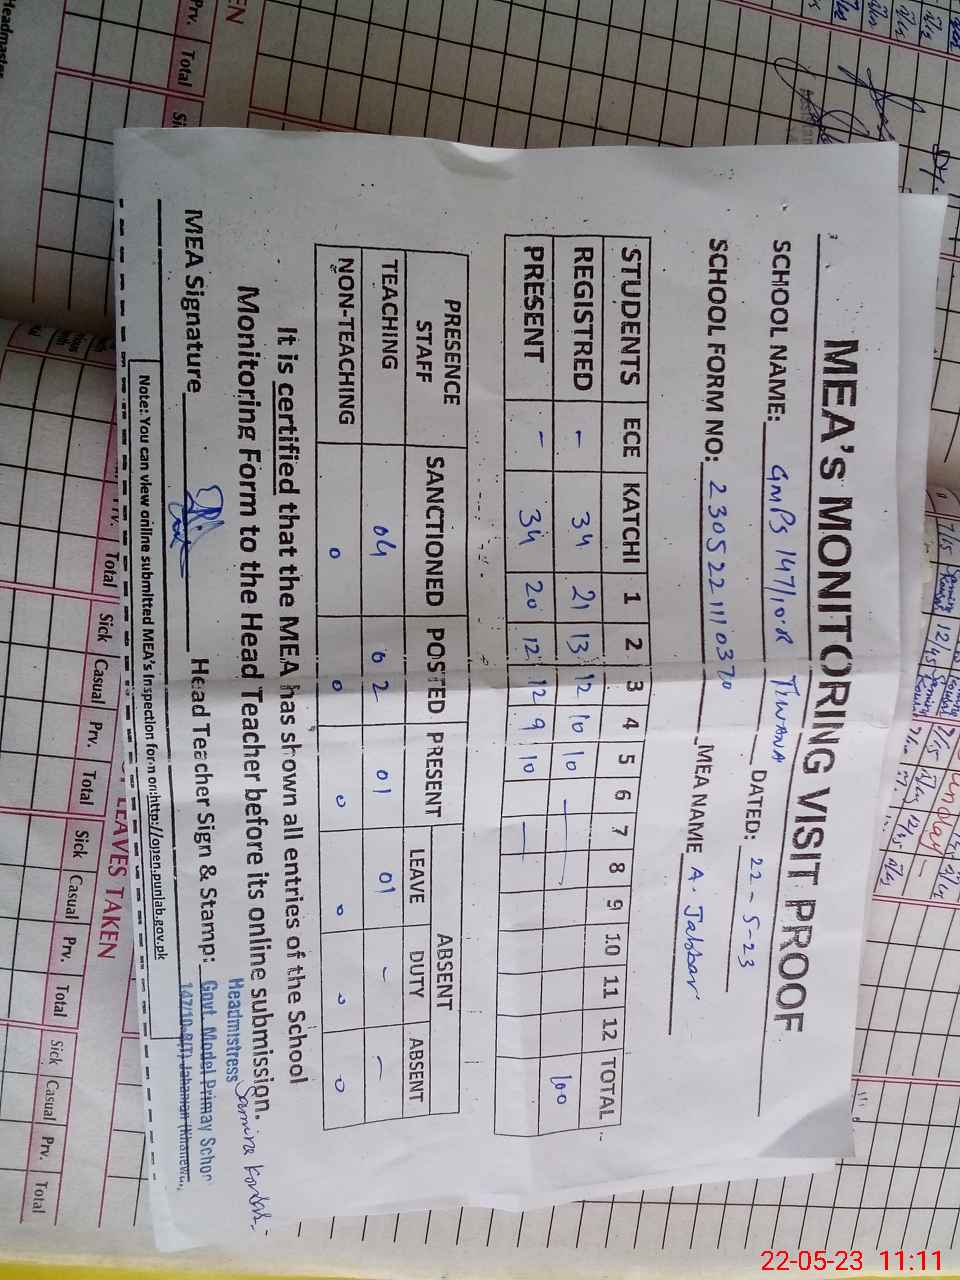 MEA's MONITORING VISIT PROOF
SCHOOL NAME: GMPS 147/10.R TIWANA DATED: 22-5-23
SCHOOL FORM NO: 23052211110370 MEA NAME A. Jabbar
STUDENTS ECE KATCHI 1 2 3 4 5 6 7 8 9 10 11 12 TOTAL
REGISTRED - 34 21 13 12 10 10 — 100
PRESENT - 34 20 12 12 9 10 —
PRESENCE STAFF SANCTIONED POSTED PRESENT ABSENT
LEAVE DUTY ABSENT
TEACHING 04 02 01 01 - -
NON-TEACHING 0 0 0 0 0 0
It is certified that the MEA has shown all entries of the School
Monitoring Form to the Head Teacher before its online submission.
MEA Signature Head Teacher Sign & Stamp:
Headmistress Samina Kousar
Govt. Model Primay Schor
147/10-R(T) Jahanian (Khanewa
Note: You can view online submitted MEA's Inspection form on:http://open.punjab.gov.pk
LEAVES TAKEN
Sick Casual Prv. Total Sick Casual Prv. Total Sick Casual Prv. Total
Prv. Total
Headmaster
22-05-23 11:11